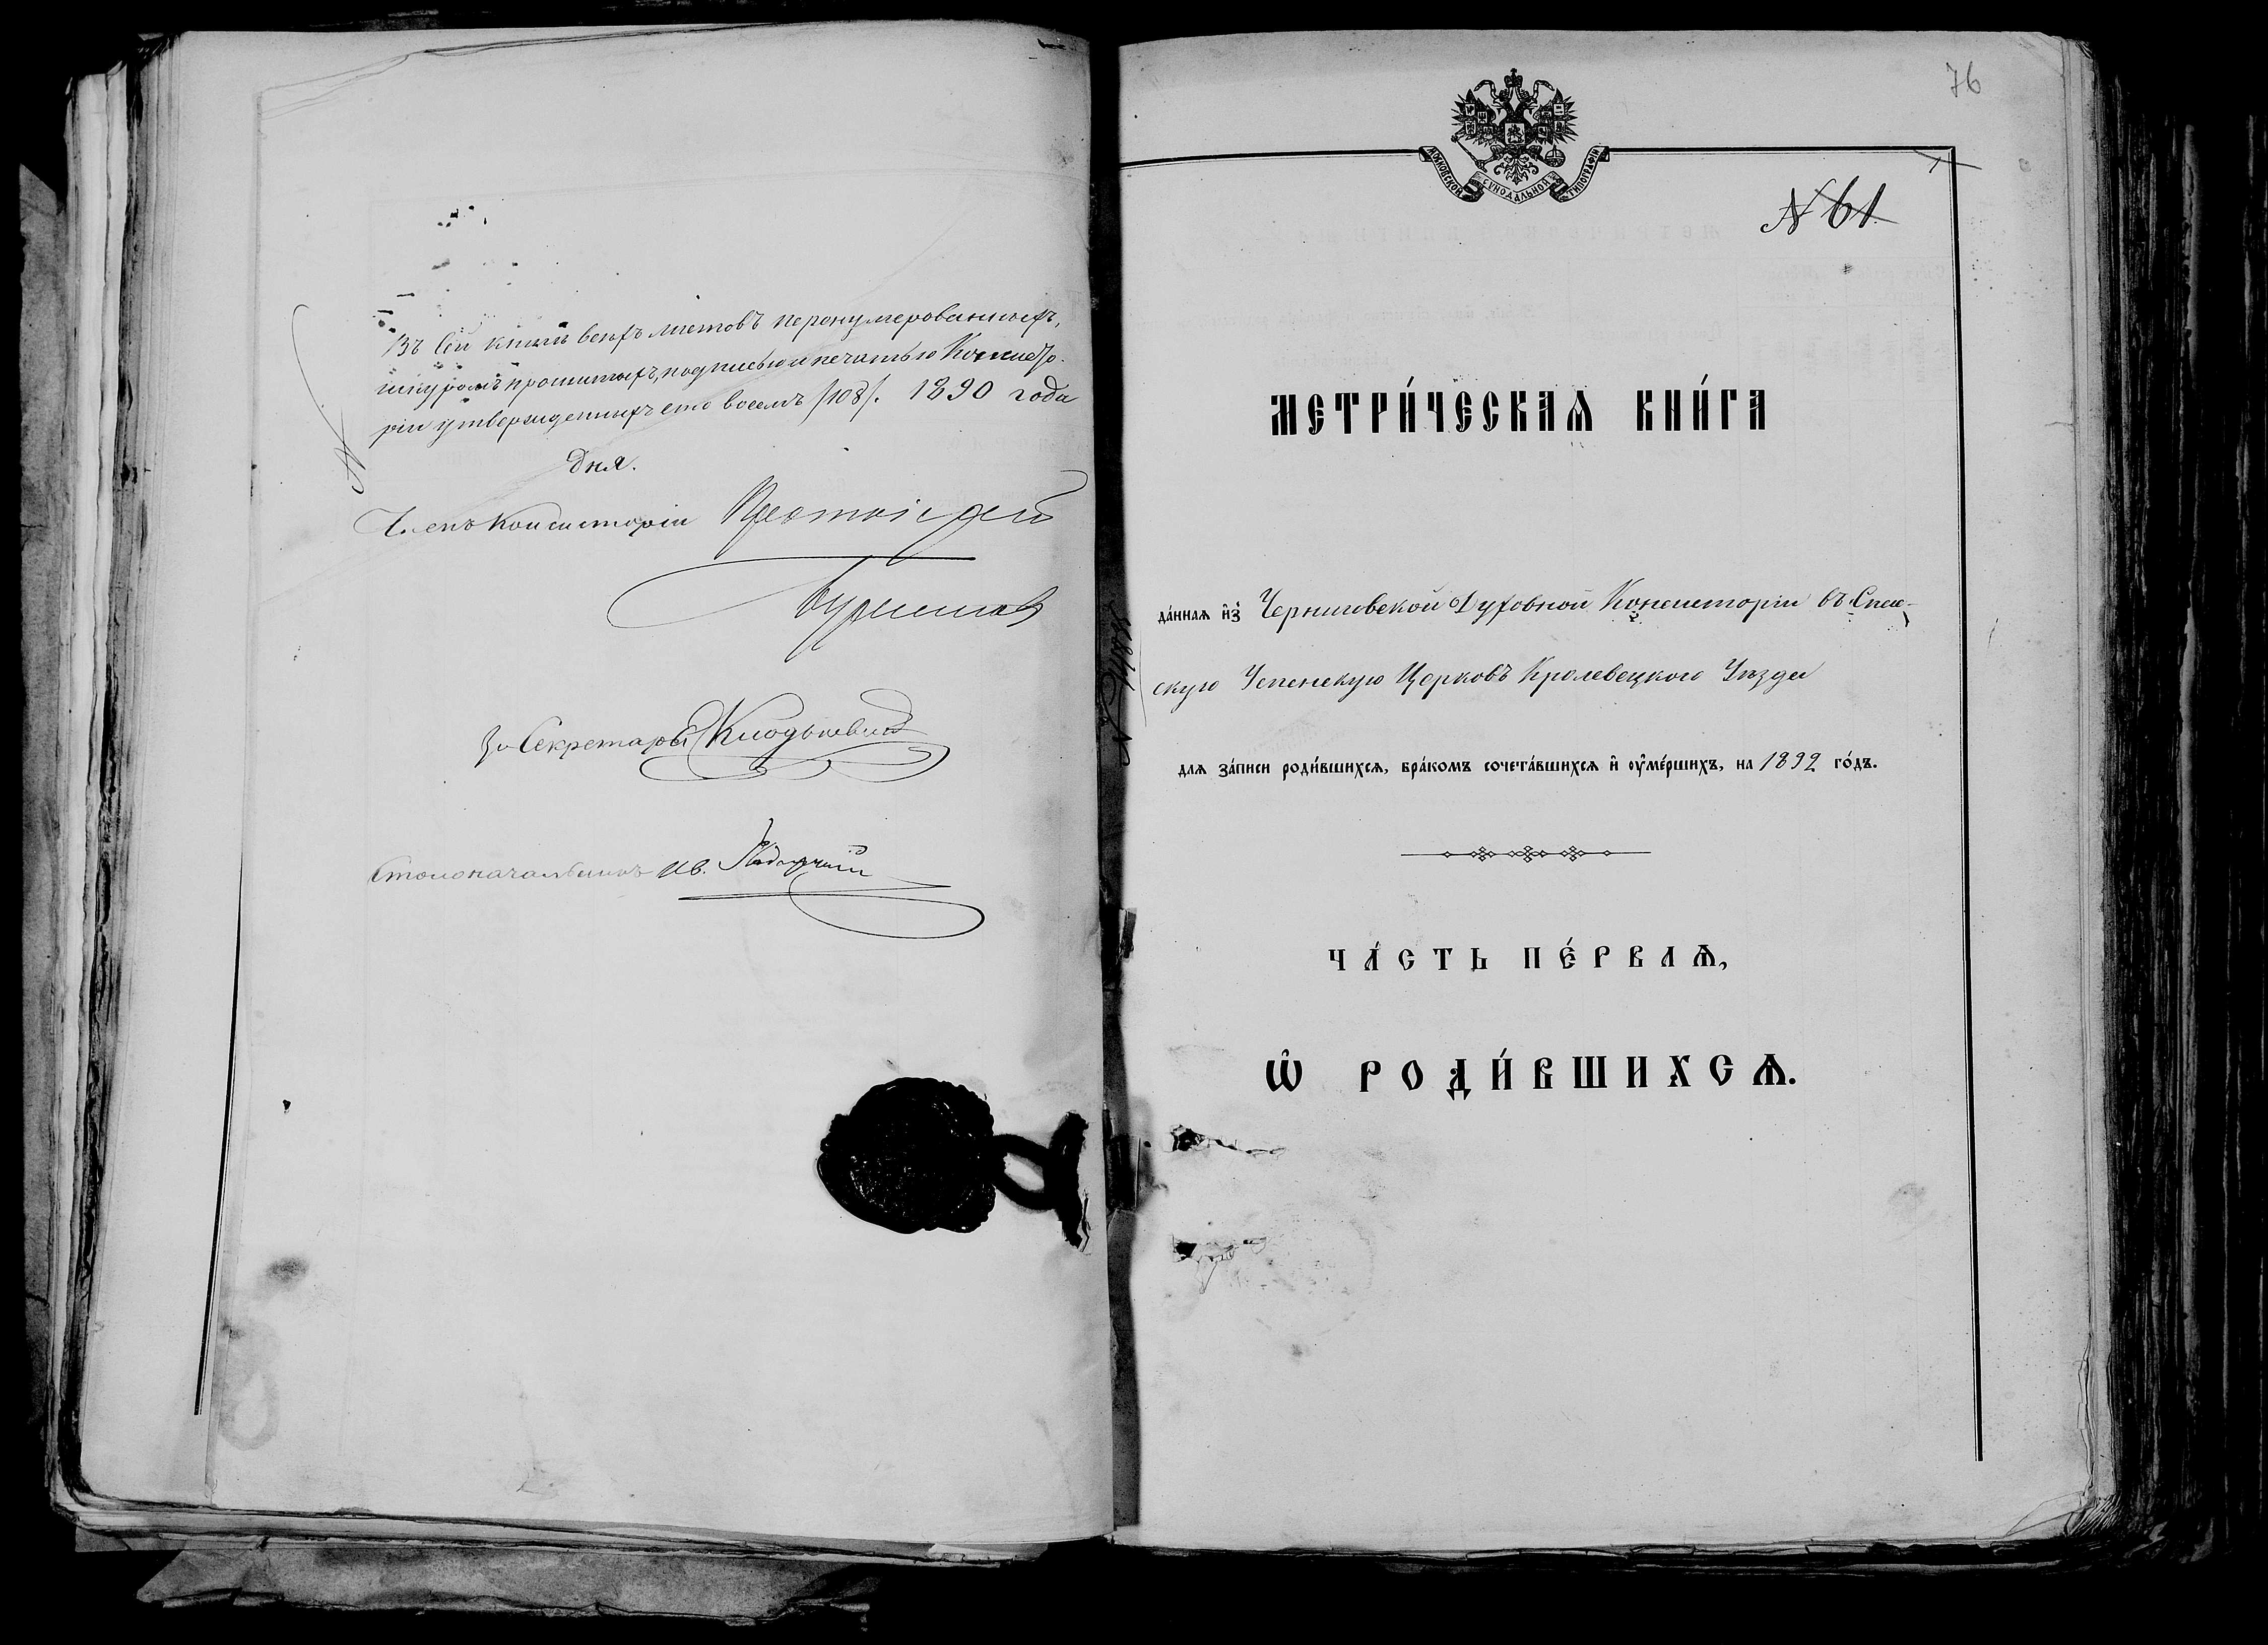 Въ сей книгѣ всѣхъ листовъ перенумерованныхъ,
шнуромъ прошитыхъ, подписью и печатью Консисто-
ріи утвержденныхъ сто восемь /108/. 1890 года
дня.
Членъ Консисторіи Протоіерей
За Секретаря
Столоначальникъ Ив.
76
МОСКОВСКОЙ СѴНОДАЛЬНОЙ ТИПОГРАФІИ
N 61
МЕТРИ́ЧЕСКАѦ КНИ́ГА
да́ннаѧ и҆з̾ Черниговской Духовной Консисторіи въ Спас-
скую Успенскую Церковь Кролевецкого Уѣзда
длѧ за́писи роди́вшихсѧ, бра́комъ сочета́вшихсѧ и҆ ᲂу҆ме́ршихъ, на 1892 го́дъ.
ЧА́СТЬ ПЕ́РВАѦ,
Ѽ РОДИ́ВШИХСѦ.